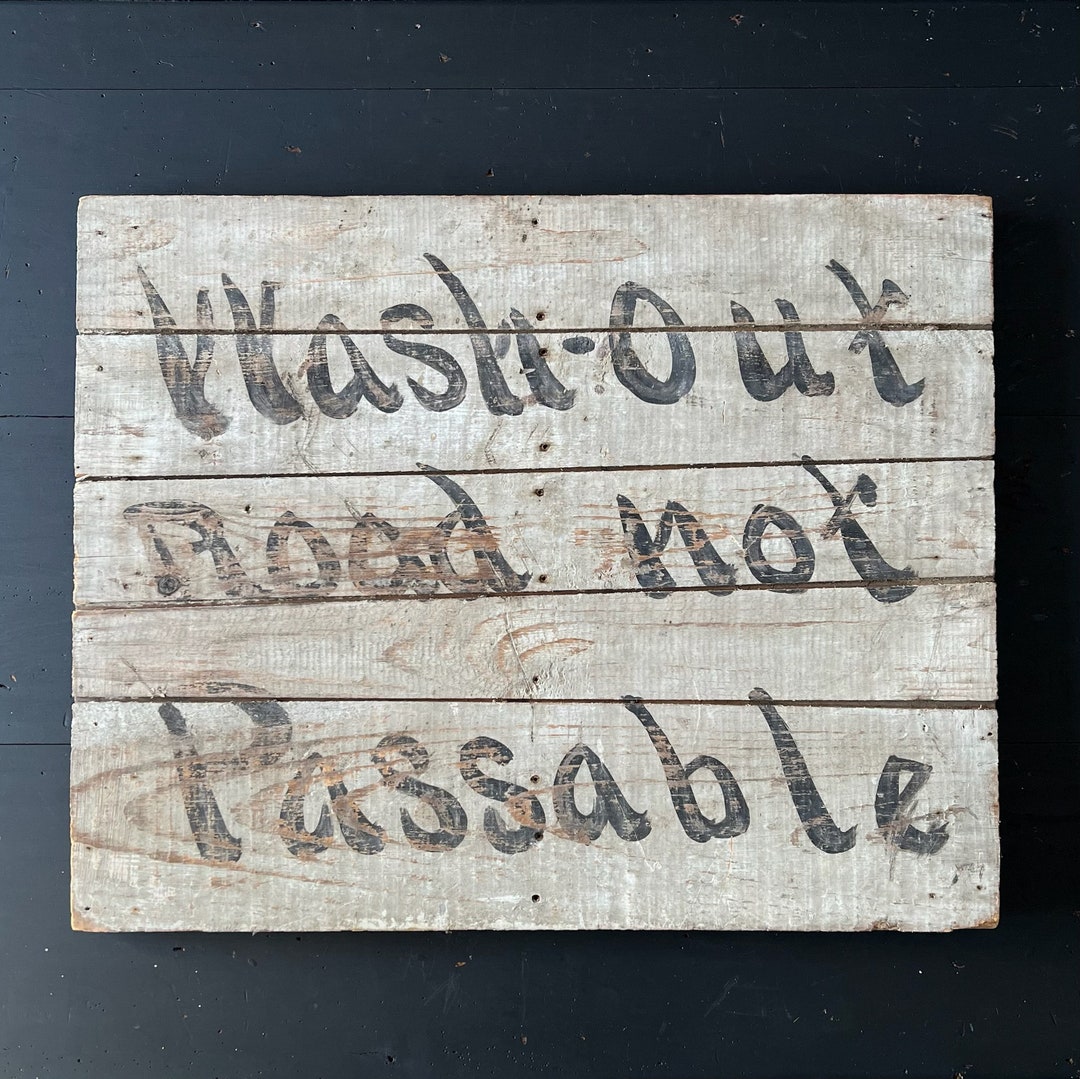 Wash-Out
Road not
Passable